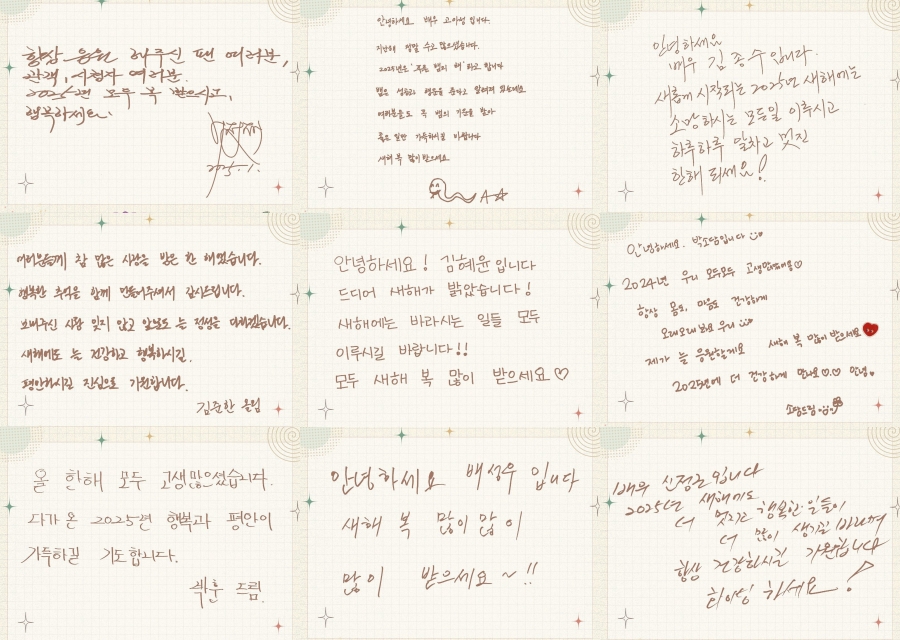 항상 응원 해주신 팬 여러분,
관객, 시청자 여러분.
2025년 모두 복 받으시고,
행복하세요.
2025. 1.
안녕하세요 배우 고아성 입니다.
지난해 정말 수고 많으셨습니다.
2025년은 '푸른 뱀의 해'라고 합니다
뱀은 성공과 행운을 준다고 알려져 있는데요
여러분들도 꼭 뱀의 기운을 받아
좋은 일만 가득하시길 바랍니다
새해 복 많이 받으세요
안녕하세요
배우 김종수 입니다.
새롭게 시작되는 2025년 새해에는
소망하시는 모든일 이루시고
하루하루 알차고 멋진
한해 되세요!
여러분들께 참 많은 사랑을 받은 한 해였습니다.
행복한 추억을 함께 만들어주셔서 감사드립니다.
보내주신 사랑 잊지 않고 앞날도 늘 정성을 다하겠습니다.
새해에도 늘 건강하고 행복하시길.
평안하시길 진심으로 기원합니다.
김준한 올림
안녕하세요! 김혜윤입니다
드디어 새해가 밝았습니다!
새해에는 바라시는 일들 모두
이루시길 바랍니다!!
모두 새해 복 많이 받으세요♡
안녕하세요. 박소담입니다
2024년 우리 모두모두 고생많았어요♡
항상 몸도, 마음도 건강하게
오래오래 봐요 우리
제가 늘 응원할게요 새해 복 많이 받으세요
2025년에 더 건강하게 만나요♡.♡ 안녕.
소담드림
올 한해 모두 고생많으셨습니다.
다가온 2025년 행복과 평안이
가득하길 기도합니다.
박훈 드림.
안녕하세요 배성우 입니다
새해 복 많이많이
많이 받으세요~!!
배우 신정근입니다
2025년 새해에도
더 멋지고 행복한 일들이
더 많이 생기길 바라며
항상 건강하시길 기원합니다
하세요!